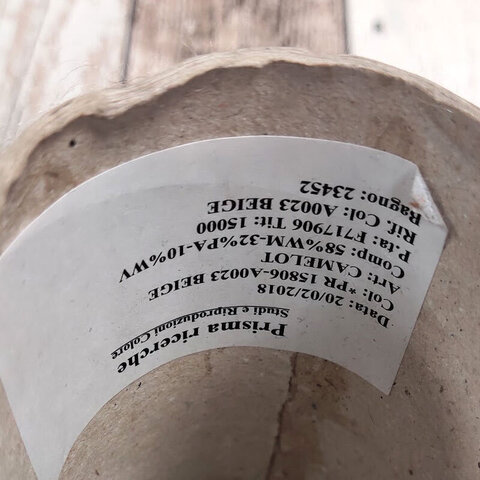 Prisma ricerche
Studi e Riproduzioni Colore
Data: 20/02/2018
Col: *PR 15806-A0023 BEIGE
Art: CAMELOT
Comp: 58%WM-32%PA-10%WV
P.ta: F717906 Tit: 15000
Rif. Col: A0023 BEIGE
Bagno: 23452